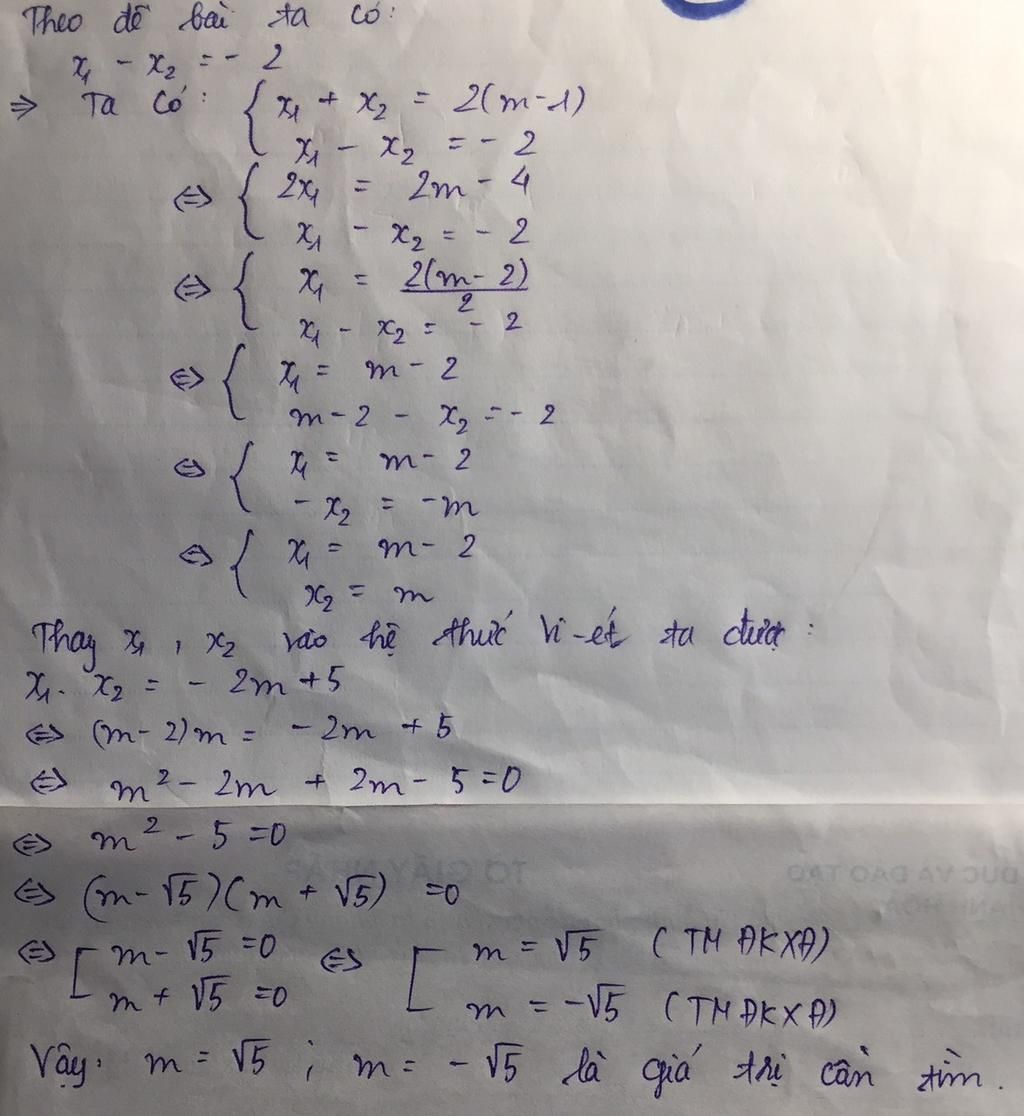 Theo đề bài ta có:
x₁ - x₂ = - 2
⇒ Ta có: { x₁ + x₂ = 2(m-1)
x₁ - x₂ = - 2
⇔ { 2x₁ = 2m - 4
x₁ - x₂ = - 2
⇔ { x₁ = 2(m- 2)/2
x₁ - x₂ = - 2
⇔ { x₁ = m - 2
m - 2 - x₂ = - 2
⇔ { x₁ = m - 2
- x₂ = -m
⇔ { x₁ = m - 2
x₂ = m
Thay x₁, x₂ vào hệ thức Vi-ét ta được:
x₁. x₂ = - 2m + 5
⇔ (m- 2)m = - 2m + 5
⇔ m² - 2m + 2m - 5 = 0
⇔ m² - 5 = 0
⇔ (m - √5)(m + √5) = 0
⇔ [ m - √5 = 0 ⇔ [ m = √5 (TM ĐKXĐ)
m + √5 = 0 m = -√5 (TM ĐKXĐ)
Vậy: m = √5 ; m = - √5 là giá trị cần tìm.